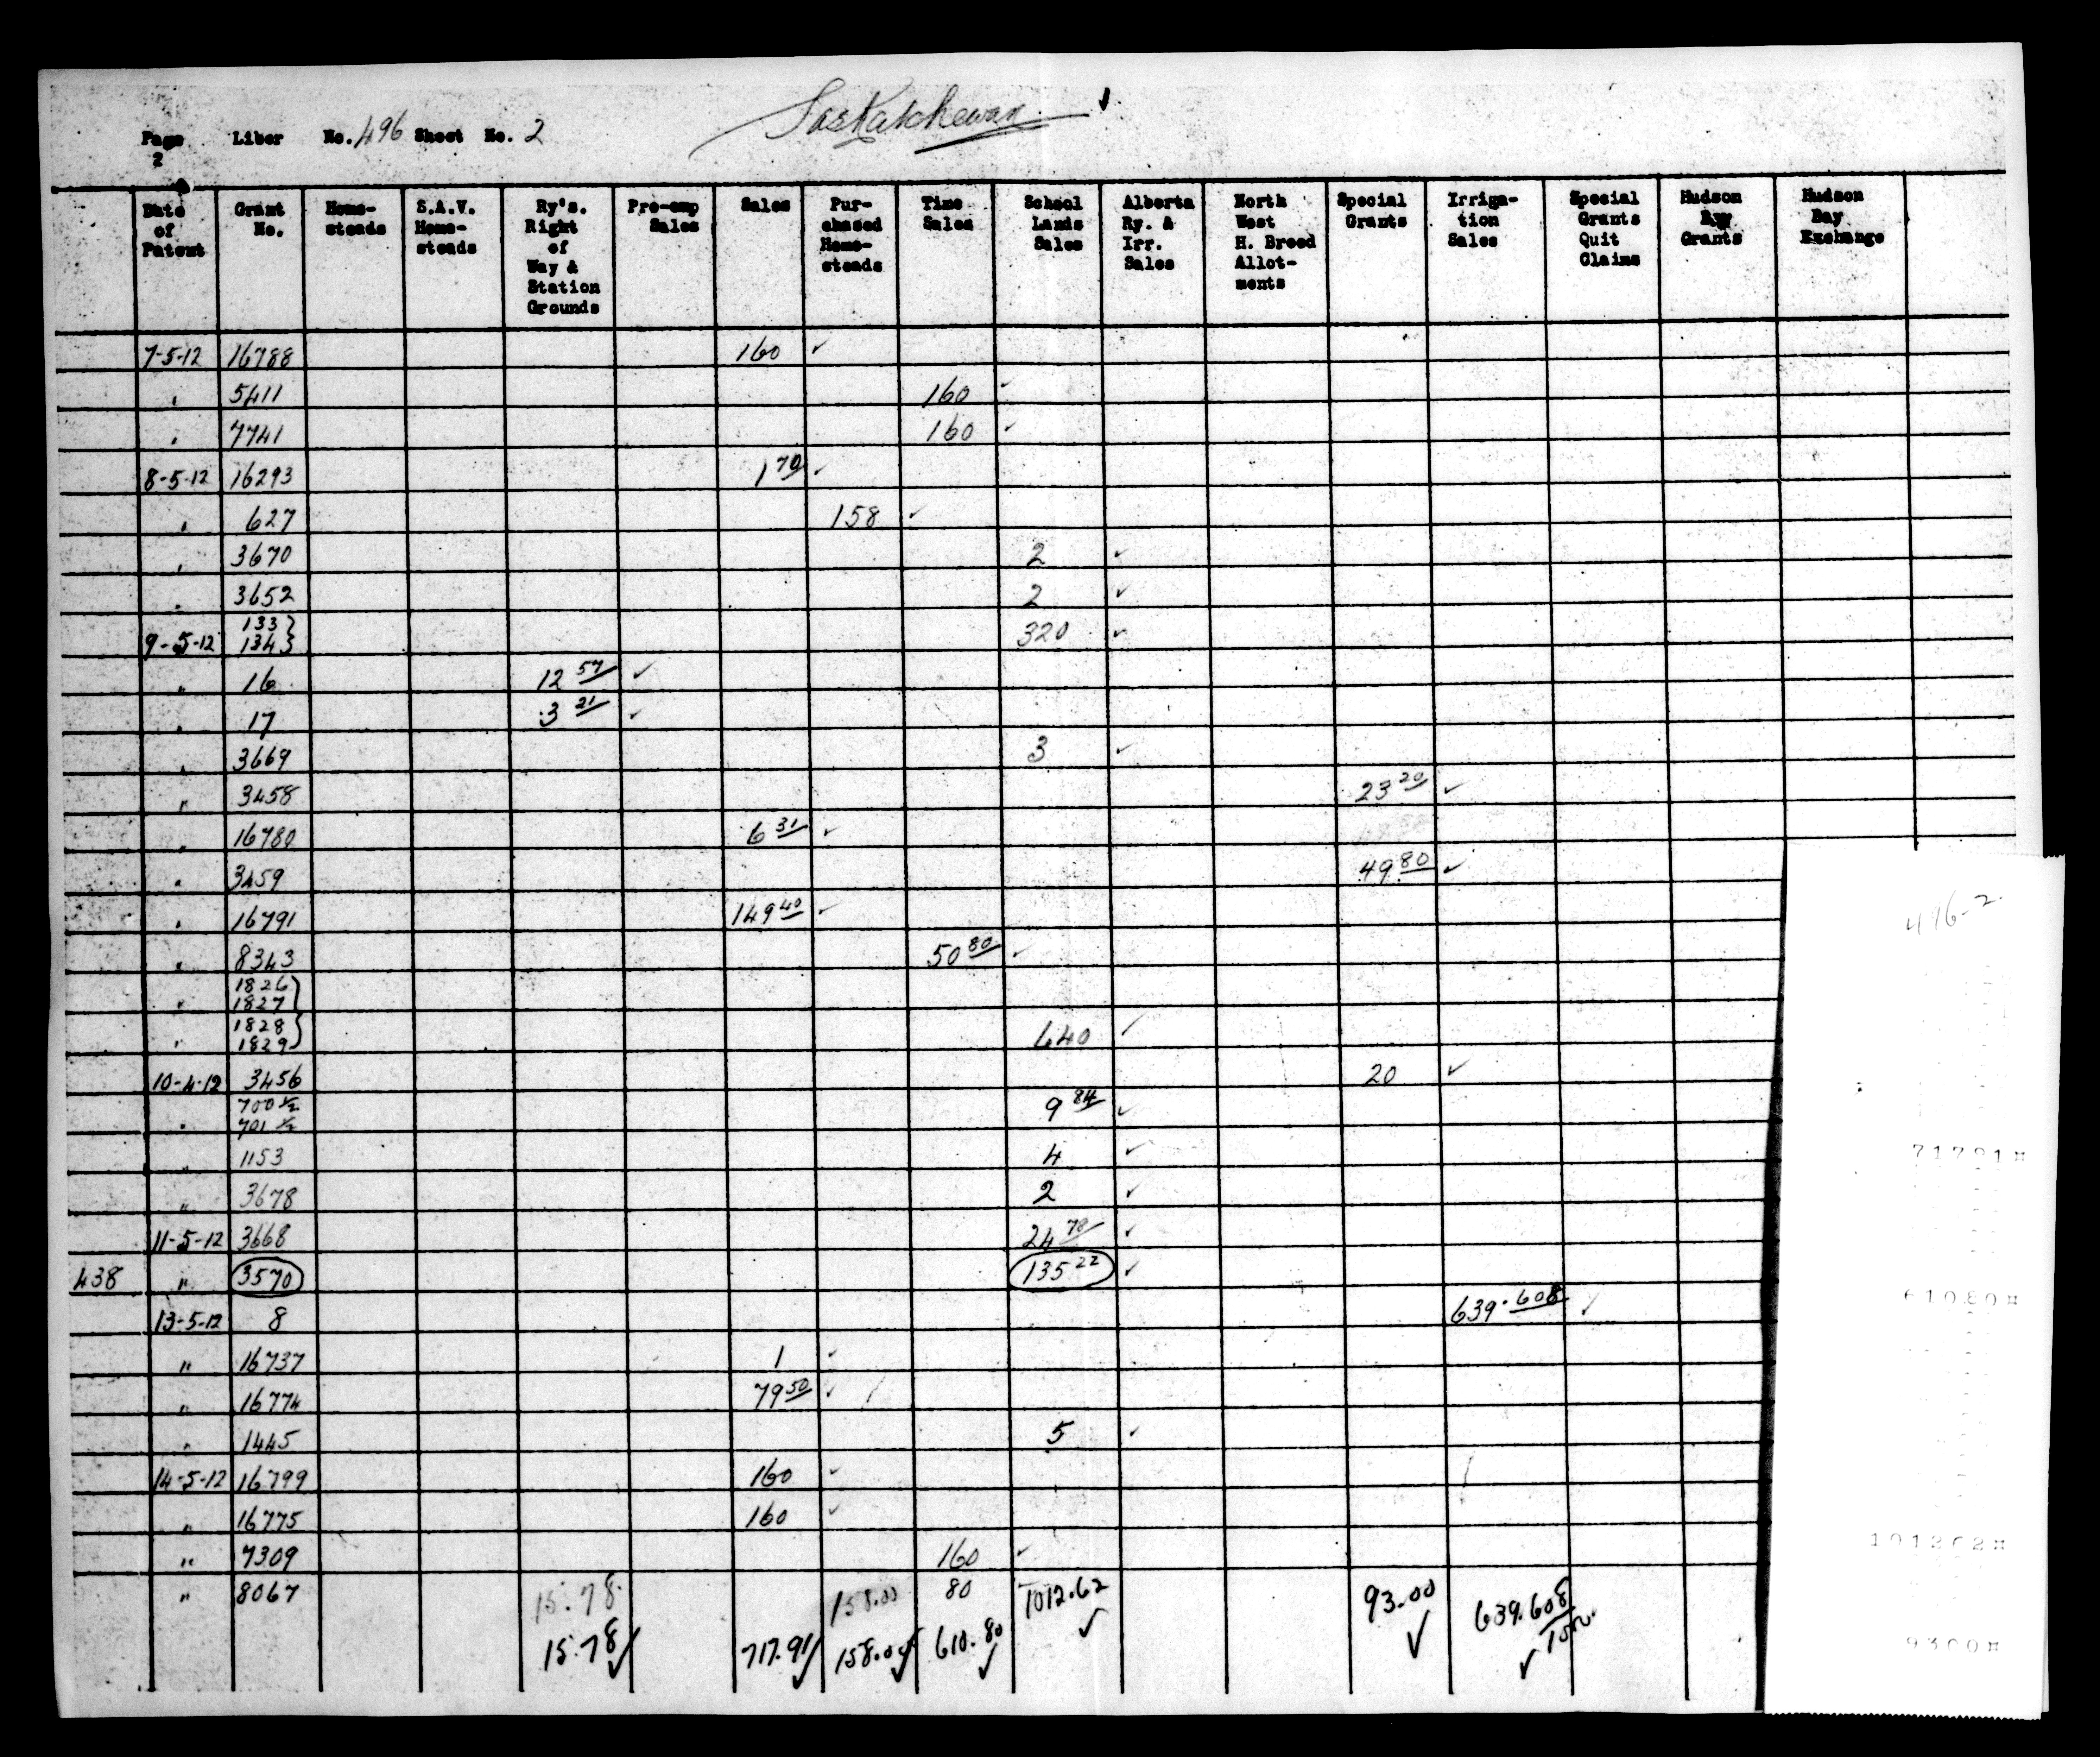 Saskatchewan
Page Liber No. 496 Sheet No. 2
2
Date of Patent | Grant No. | Home-steads | S.A.V. Home-steads | Ry's. Right of Way & Station Grounds | Pre-emp Sales | Sales | Pur-chased Home-steads | Time Sales | School Lands Sales | Alberta Ry. & Irr. Sales | North West H. Breed Allot-ments | Special Grants | Irriga-tion Sales | Special Grants Quit Claims | Hudson Bay Grants | Hudson Bay Exchange
7-5-12 16788 160 ✓
" 5411 160 ✓
" 7741 160 ✓
8-5-12 16293 1 70 ✓
" 627 158 ✓
" 3670 2 ✓
" 3652 2 ✓
133 }
9-5-12 134 } 320 ✓
" 16 12 57 ✓
" 17 3 21 ✓
" 3669 3 ✓
" 3458 23 20 ✓
" 16780 6 31 ✓
" 3459 49 80 ✓
" 16791 149 40 ✓
" 8343 50 80 ✓
1826 }
" 1827 }
1828 }
" 1829 } 640 ✓
10-4-12 3456 20 ✓
700 ½ 9 84 ✓
" 701 ½
" 1153 4 ✓
" 3678 2 ✓
11-5-12 3668 24 78 ✓
438 " 3570 135 22 ✓
13-5-12 8 639.608 ✓
" 16737 1 ✓
" 16774 79 50 ✓
" 1445 5 ✓
14-5-12 16799 160 ✓
" 16775 160 ✓
" 7309 160 ✓
" 8067 15.78 158.00 80 1012.62 ✓ 93.00 ✓ 639.608 ✓
15.78 ✓ 717.91 ✓ 158.00 ✓ 610.80 ✓
496-2
71791¤
61080¤
9300¤